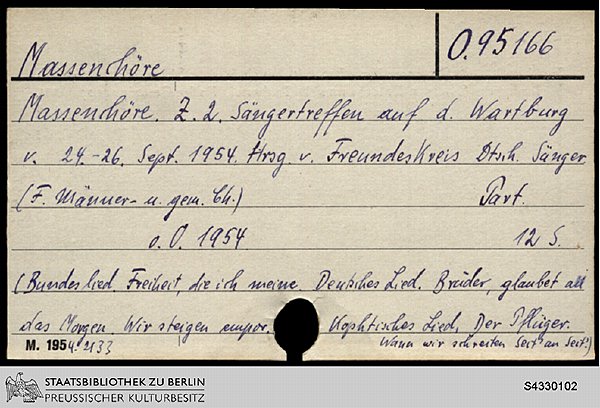 Massenchöre
O.95166
Massenchöre. Z. 2. Sängertreffen auf d. Wartburg
v. 24.-26. Sept. 1954. Hrsg. v. Freundeskreis Dtsch. Sänger.
(F. Männer- u. gem. Ch.) Part.
o. O. 1954 12 S.
(Bundeslied. Freiheit, die ich meine. Deutsches Lied. Brüder, glaubet an
das Morgen. Wir steigen empor. Kophtisches Lied. Der Pflüger.
Wann wir schreiten Seit' an Seit'.)
M. 1954. 2133
STAATSBIBLIOTHEK ZU BERLIN
PREUSSISCHER KULTURBESITZ
S4330102